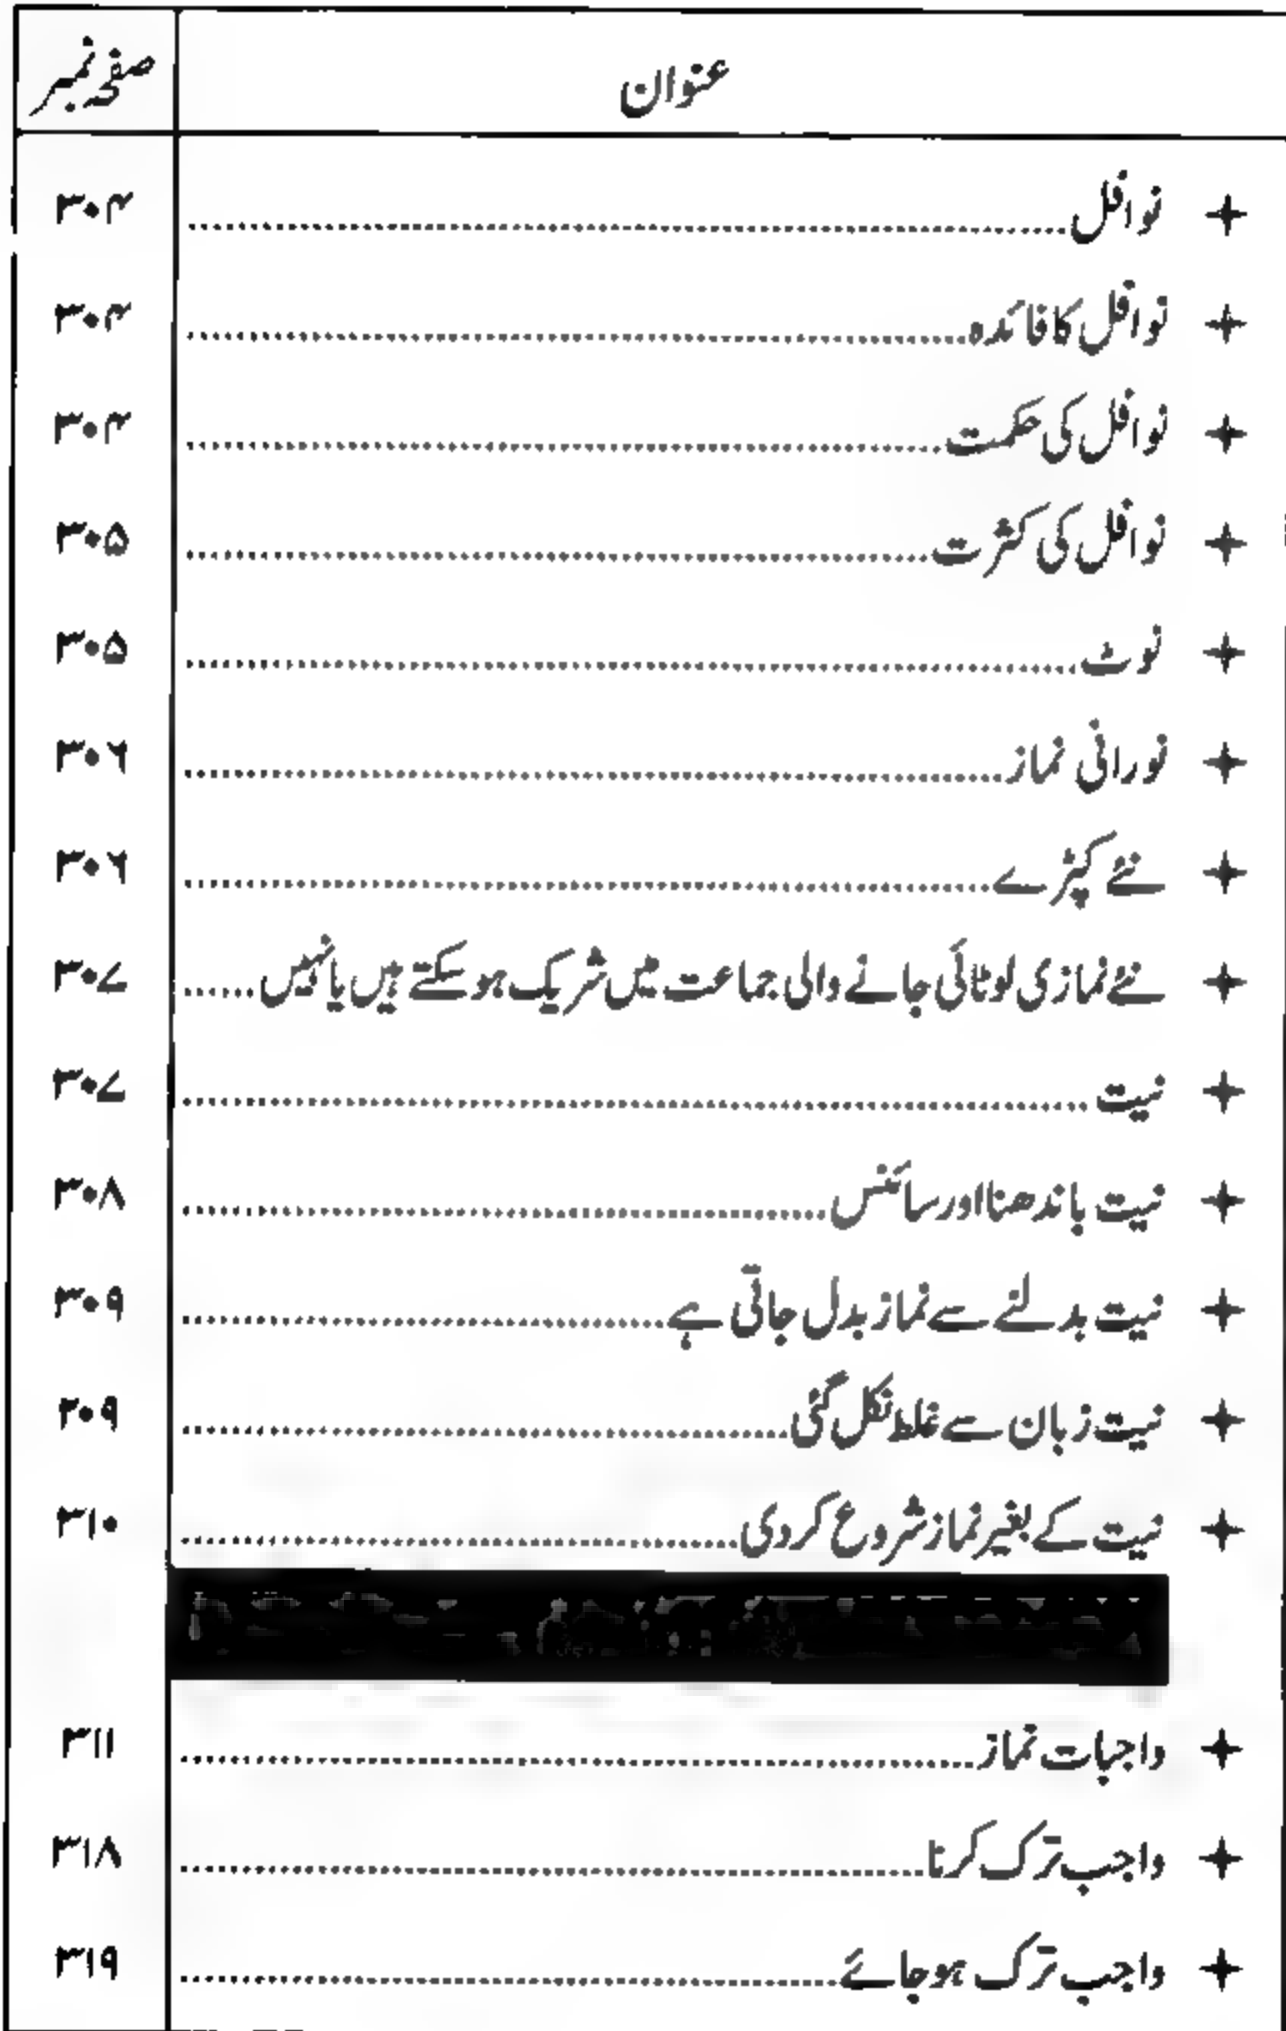 عنوان صفحہ نمبر
نوافل ۳۰۴
نوافل کا فائدہ ۳۰۴
نوافل کی حکمت ۳۰۴
نوافل کی کثرت ۳۰۵
نوٹ ۳۰۵
نورانی نماز ۳۰۶
نئے کپڑے ۳۰۶
نئے نمازی لوٹائی جانے والی جماعت میں شریک ہوسکتے ہیں یا نہیں ۳۰۷
نیت ۳۰۷
نیت باندھنا اور سائنس ۳۰۸
نیت بدلنے سے نماز بدل جاتی ہے ۳۰۹
نیت زبان سے غلط نکل گئی ۳۰۹
نیت کے بغیر نماز شروع کردی ۳۱۰
واجبات نماز ۳۱۱
واجب ترک کرنا ۳۱۸
واجب ترک ہوجائے ۳۱۹